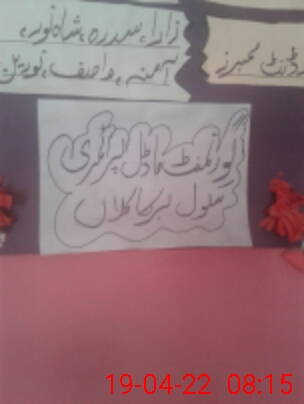 زارا، سدرہ، شاہ نور،
آمنہ، واصف، نوریل
ڈنٹ ممبرز
گورنمنٹ ماڈل پرائمری
سکول برکالاں
19-04-22 08:15